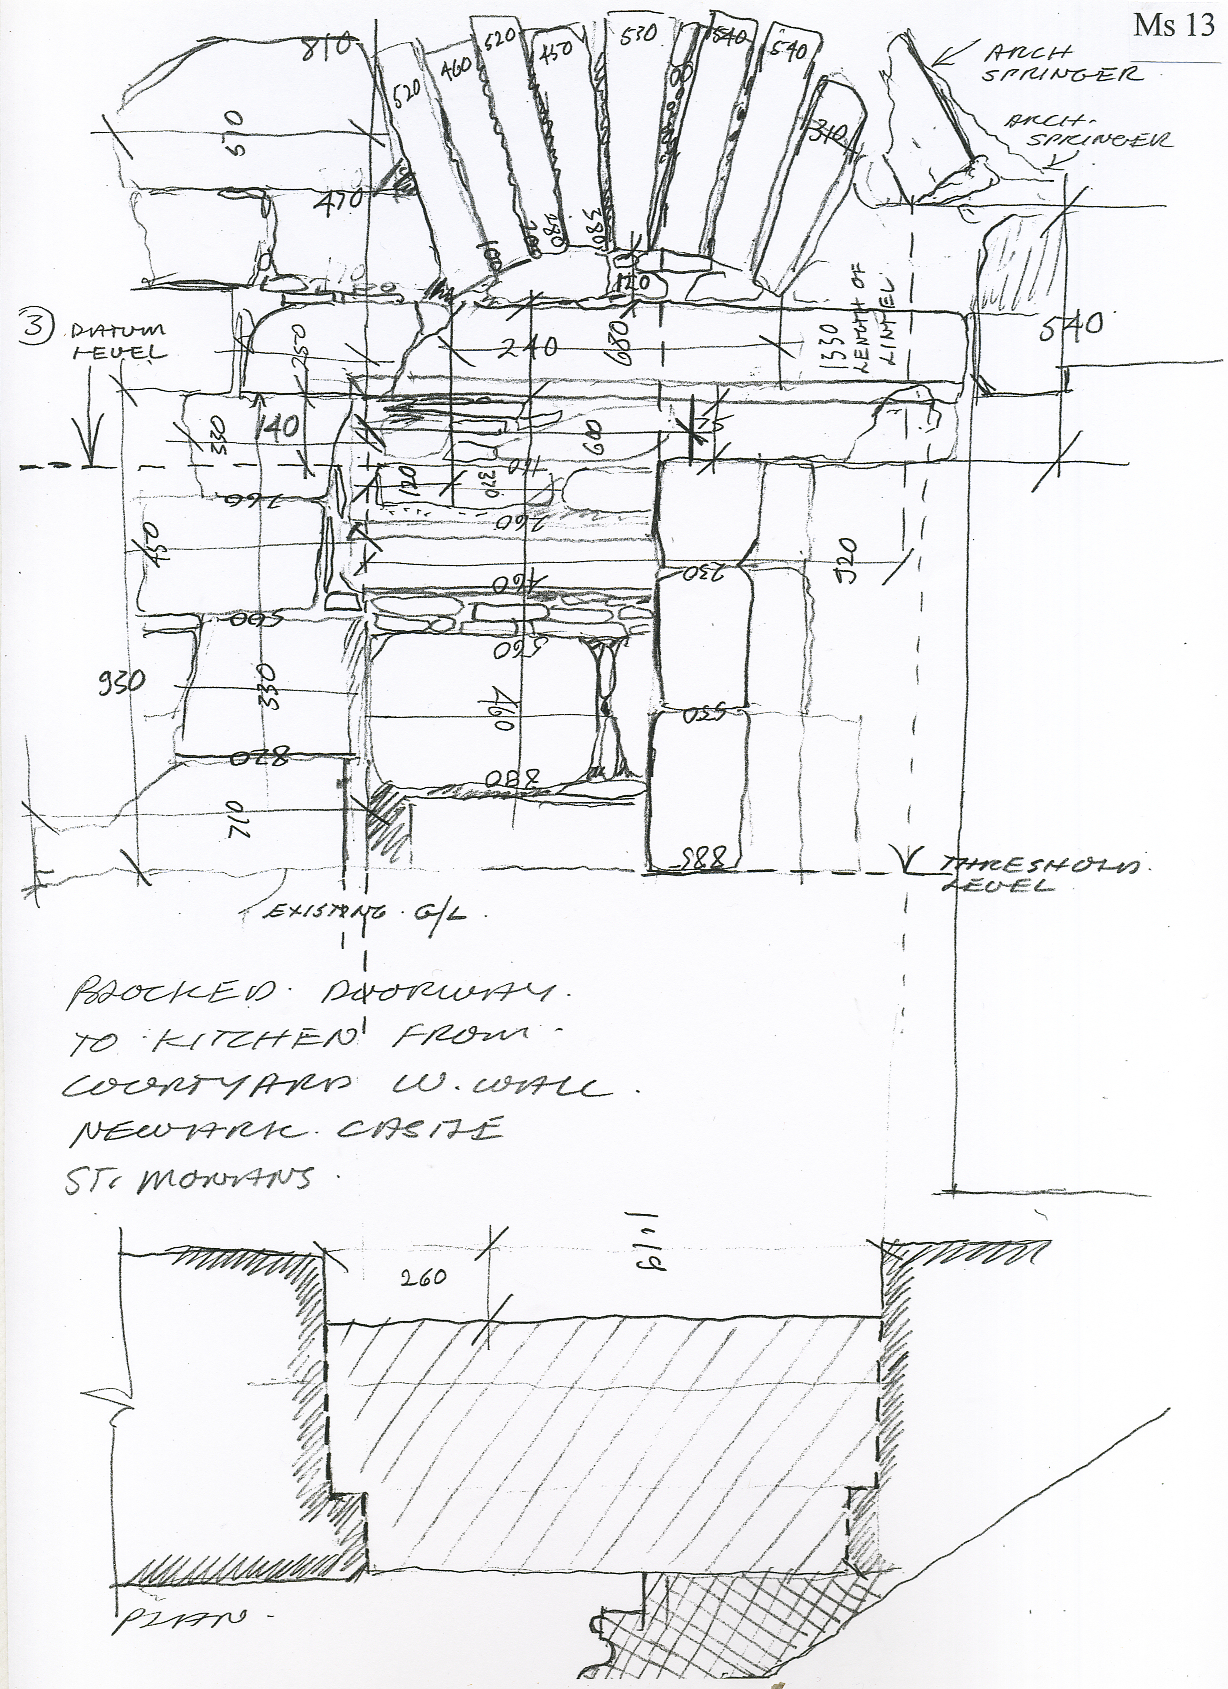 Ms 13
ARCH
SPRINGER
ARCH.
SPRINGER
810
520
460
520
450
530
540
540
310
510
470
120
3
DATUM
LEVEL
250
240
680
1330
LENGTH OF
LINTEL
540
330
140
600
75
120
260
260
450
460
230
920
500
560
930
330
460
550
820
380
710
885
THRESHOLD.
LEVEL
EXISTING. G/L.
BLOCKED. DOORWAY.
TO KITCHEN FROM
COURTYARD W. WALL.
NEWARK. CASTLE
ST. MONANS.
260
PLAN